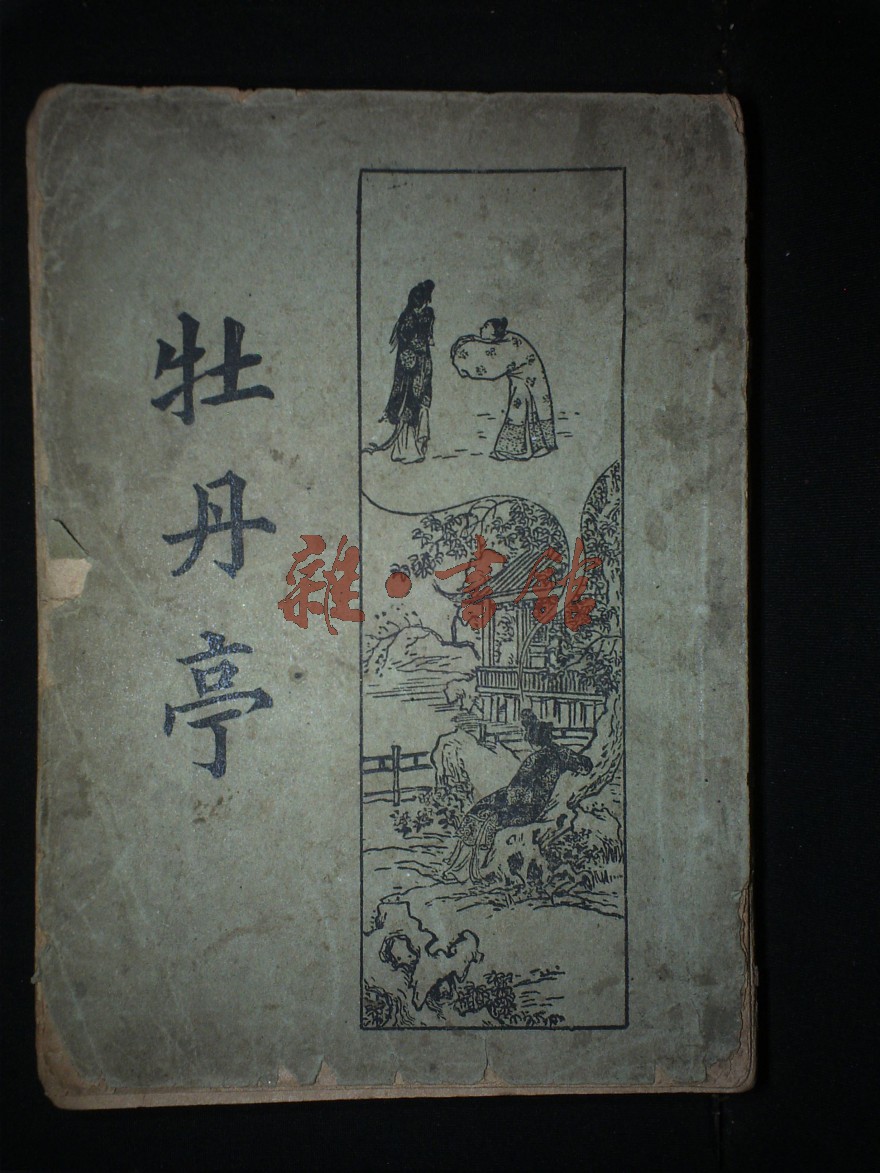 牡丹亭
雜·書館